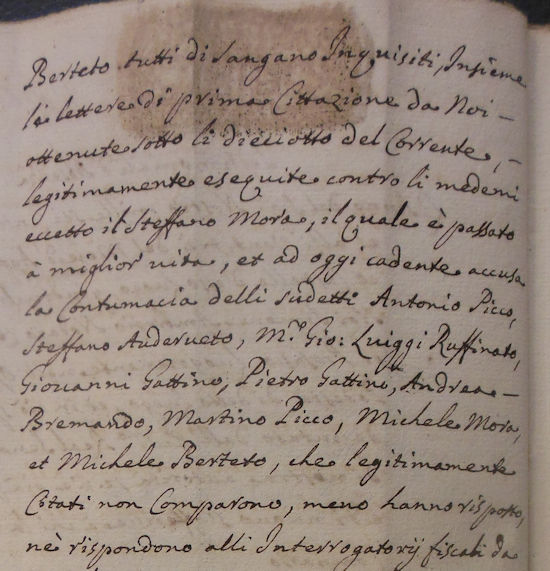 Berteto tutti di Sangano Inquisiti, Insieme
le lettere di prima Cittazione da Noi -
ottenute sotto li dieciotto del Corrente, -
legitimamente esequite contro li medemi
eccetto il Steffano Mora, il quale è passato
à miglior vita, et ad oggi cadente accusa
la Contumacia delli sudetti Antonio Picco,
Steffano Auderueto, M.ro Gio: Luiggi Ruffinato,
Giouanni Gattino, Pietro Gattino, Andrea -
Bremando, Martino Picco, Michele Mora,
et Michele Berteto, che legitimamente
Citati non Comparono, meno hanno risposto,
nè rispondono alli Interrogatorij fiscali da